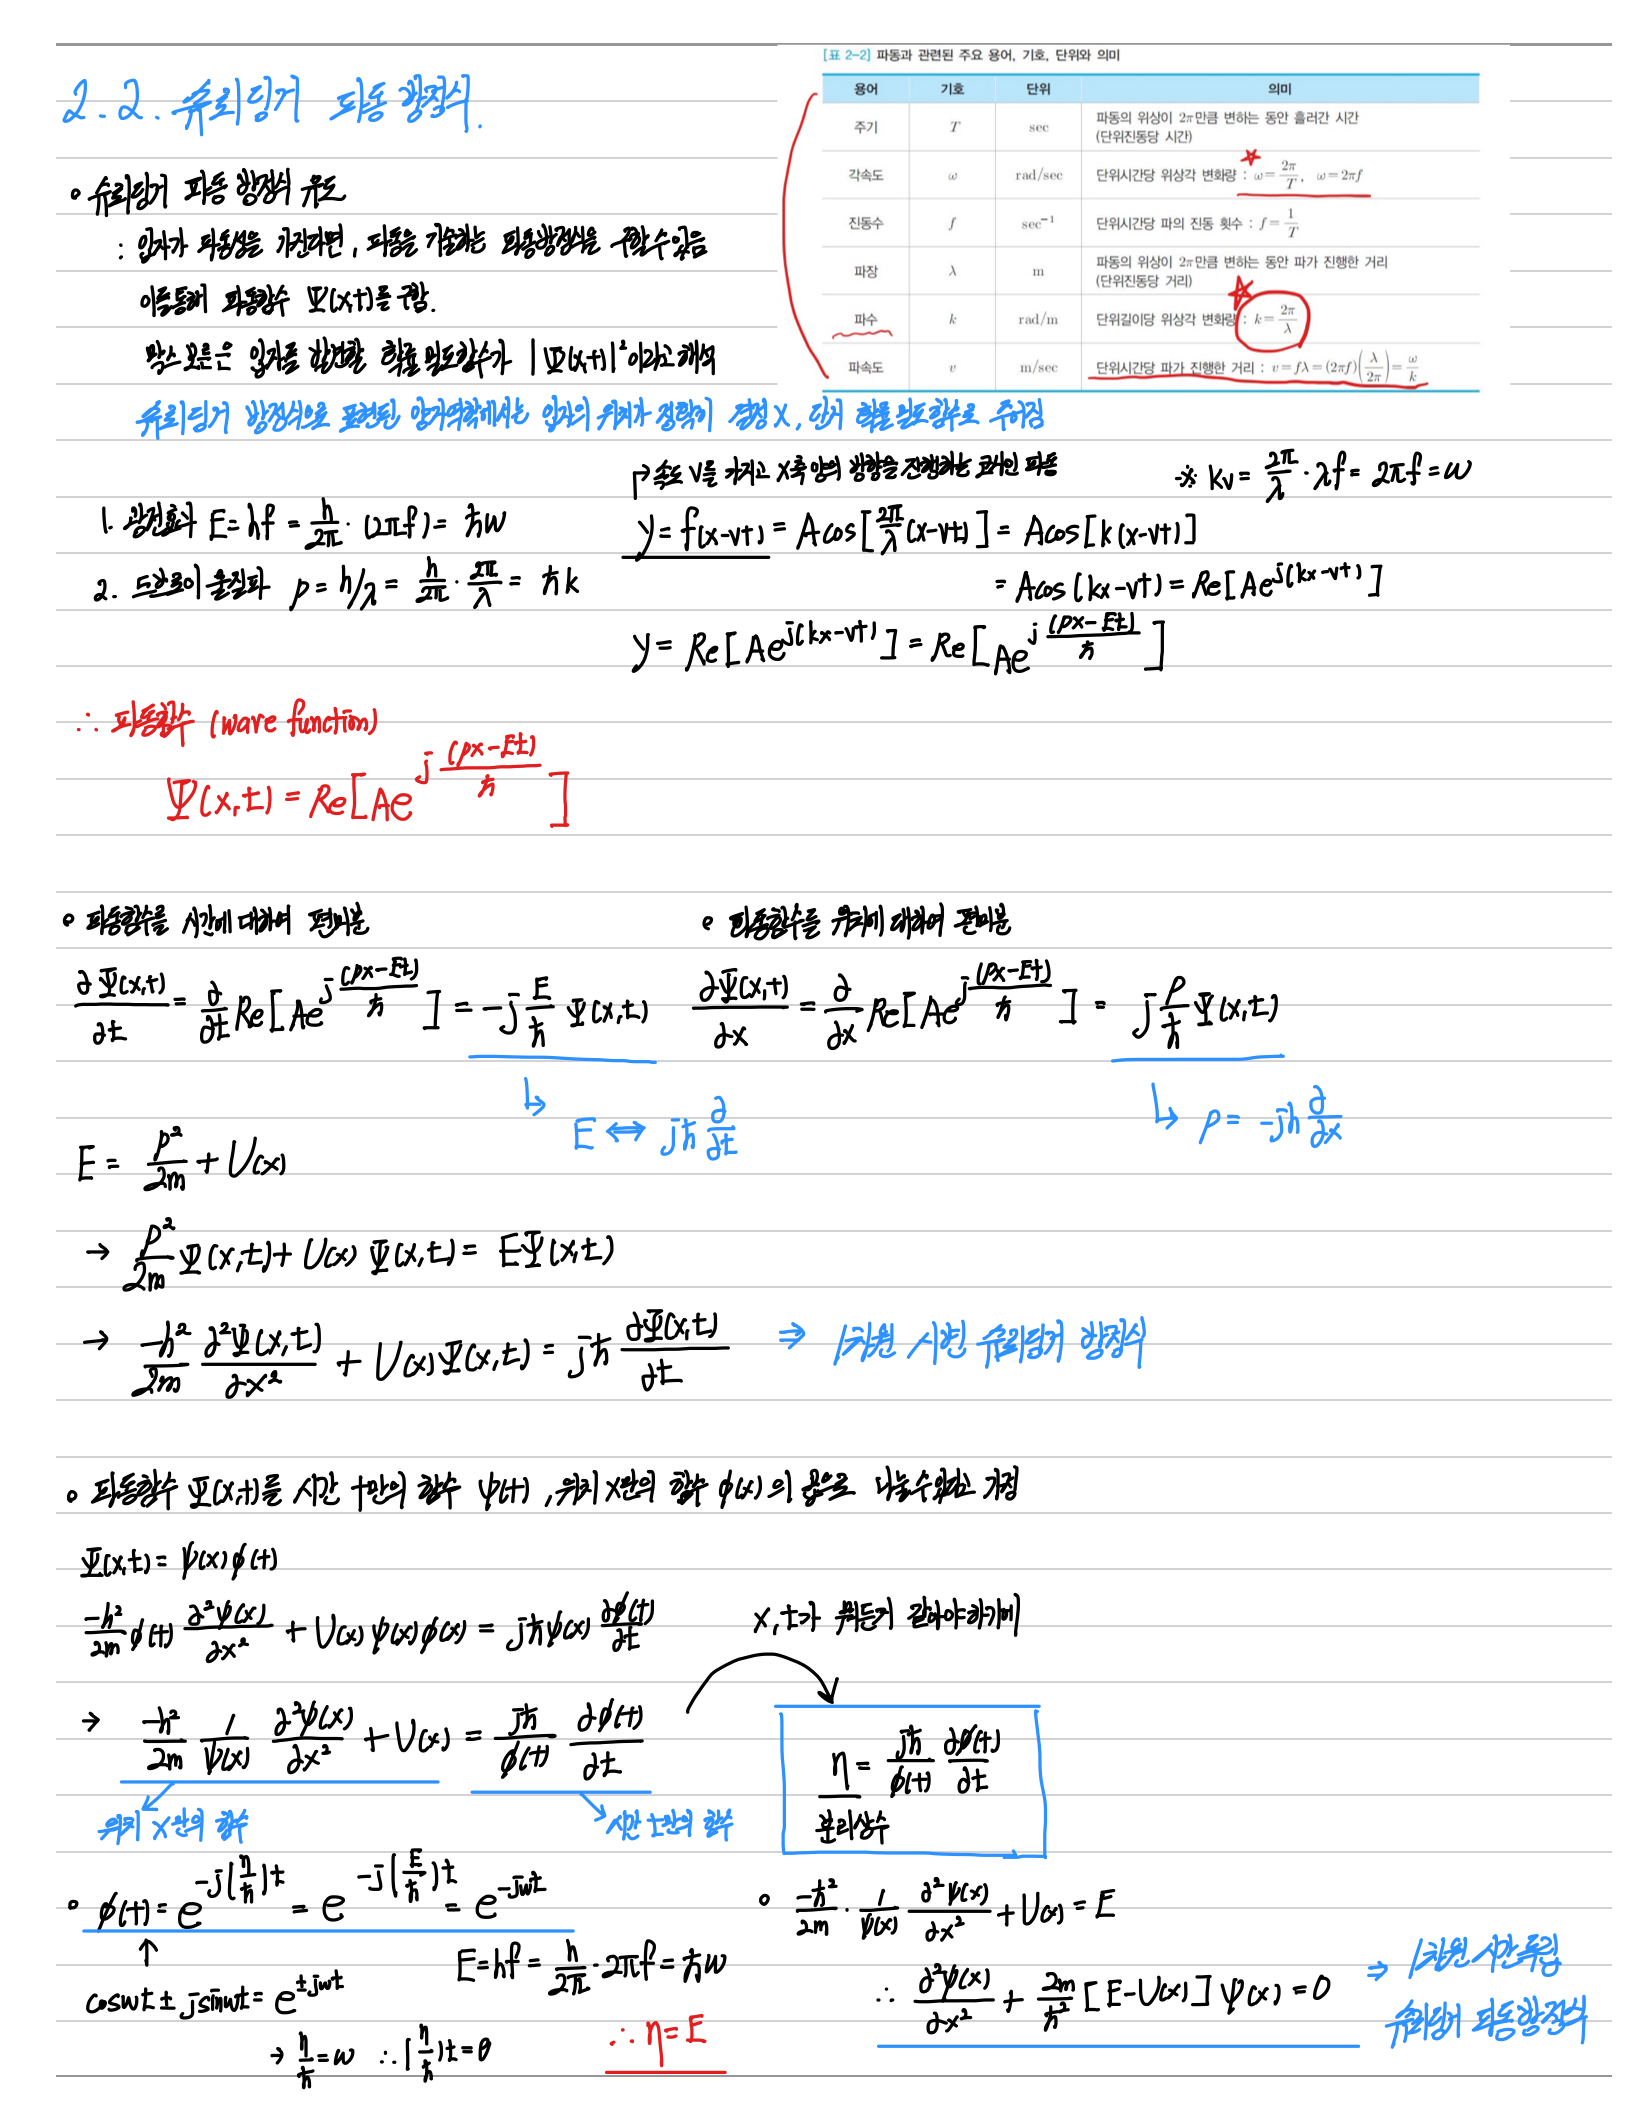 2-2. 슈뢰딩거 파동 방정식.
[표 2-2] 파동과 관련된 주요 용어, 기호, 단위와 의미
용어 기호 단위 의미
주기 T sec 파동의 위상이 2π만큼 변하는 동안 흘러간 시간
(단위진동당 시간)
각속도 ω rad/sec 단위시간당 위상각 변화량 : ω = 2π/T, ω = 2πf
진동수 f sec⁻¹ 단위시간당 파의 진동 횟수 : f = 1/T
파장 λ m 파동의 위상이 2π만큼 변하는 동안 파가 진행한 거리
(단위진동당 거리)
파수 k rad/m 단위길이당 위상각 변화량 : k = 2π/λ
파속도 v m/sec 단위시간당 파가 진행한 거리 : v = fλ = (2πf)(λ/2π) = ω/k
∘ 슈뢰딩거 파동 방정식 유도
: 입자가 파동성을 가진다면, 파동을 기술하는 파동방정식을 구할 수 있음
이를통해 파동함수 Ψ(x,t)를 구함.
막스 보른은 입자를 발견할 확률 밀도함수가 |Ψ(x,t)|²이라고 해석
슈뢰딩거 방정식으로 표현된 양자역학에서는 입자의 위치가 정확히 결정 X, 단지 확률밀도함수로 주어짐
1. 광전효과 E = hf = h/2π · (2πf) = ħω
2. 드브로이 물질파 p = h/λ = h/2π · 2π/λ = ħk
↱ 속도 v를 가지고 x축 양의 방향을 진행하는 코사인 파동
※ kv = 2π/λ · λf = 2πf = ω
y = f(x-vt) = Acos[2π/λ (x-vt)] = Acos[k(x-vt)]
= Acos(kx-vt) = Re[Ae^{j(kx-vt)}]
y = Re[Ae^{j(kx-vt)}] = Re[Ae^{j(px-Et)/ħ}]
∴ 파동함수 (wave function)
Ψ(x,t) = Re[Ae^{j(px-Et)/ħ}]
∘ 파동함수를 시간에 대하여 편미분
∂Ψ(x,t)/∂t = ∂/∂t Re[Ae^{j(px-Et)/ħ}] = -j E/ħ Ψ(x,t)
↳ E ⇔ jħ ∂/∂t
∘ 파동함수를 위치에 대하여 편미분
∂Ψ(x,t)/∂x = ∂/∂x Re[Ae^{j(px-Et)/ħ}] = j p/ħ Ψ(x,t)
↳ p = -jħ ∂/∂x
E = p²/2m + U(x)
→ p²/2m Ψ(x,t) + U(x) Ψ(x,t) = EΨ(x,t)
→ -ħ²/2m ∂²Ψ(x,t)/∂x² + U(x)Ψ(x,t) = jħ ∂Ψ(x,t)/∂t ⇒ 1차원 시변 슈뢰딩거 방정식
∘ 파동함수 Ψ(x,t)를 시간 t만의 함수 ψ(t), 위치 x만의 함수 φ(x)의 곱으로 나눌수있다고 가정
Ψ(x,t) = ψ(x)φ(t)
-ħ²/2m φ(t) ∂²ψ(x)/∂x² + U(x)ψ(x)φ(x) = jħψ(x) ∂φ(t)/∂t
x, t가 뭐든지 같아야하기에
→ -ħ²/2m 1/ψ(x) ∂²ψ(x)/∂x² + U(x) = jħ/φ(t) ∂φ(t)/∂t
위치 x만의 함수
시간 t만의 함수
η = jħ/φ(t) ∂φ(t)/∂t
분리상수
∘ φ(t) = e^{-j(η/ħ)t} = e^{-j(E/ħ)t} = e^{-jωt}
↑
cosωt ± jsinωt = e^{±jωt}
E = hf = h/2π · 2πf = ħω
→ η/ħ = ω ∴ (η/ħ)t = θ
∴ η = E
∘ -ħ²/2m · 1/ψ(x) ∂²ψ(x)/∂x² + U(x) = E
∴ ∂²ψ(x)/∂x² + 2m/ħ² [E-U(x)] ψ(x) = 0
⇒ 1차원 시간독립
슈뢰딩거 파동방정식